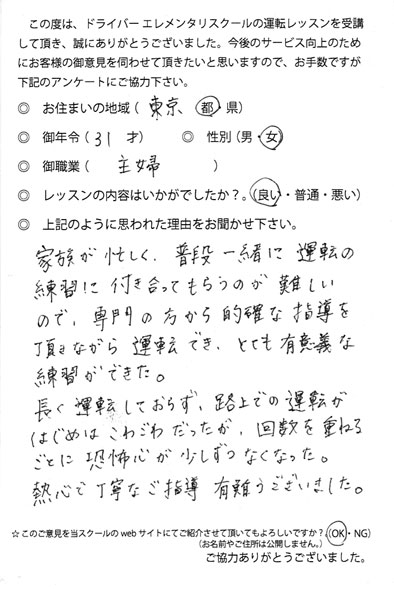 この度は、ドライバーエレメンタリスクールの運転レッスンを受講
して頂き、誠にありがとうございました。今後のサービス向上のため
にお客様の御意見を伺わせて頂きたいと思いますので、お手数ですが
下記のアンケートにご協力下さい。
◎ お住まいの地域（ 東京 都・県）
◎ 御年令（ 31 才） ◎ 性別（男・女）
◎ 御職業（ 主婦 ）
◎ レッスンの内容はいかがでしたか？。（良い・普通・悪い）
◎ 上記のように思われた理由をお聞かせ下さい。
家族が忙しく、普段一緒に運転の
練習に付き合ってもらうのが難しい
ので、専門の方から的確な指導を
頂きながら運転でき、とても有意義な
練習ができた。
長く運転しておらず、路上での運転が
はじめはこわごわだったが、回数を重ねる
ごとに恐怖心が少しずつなくなった。
熱心で丁寧なご指導有難うございました。
☆このご意見を当スクールのwebサイトにてご紹介させて頂いてもよろしいですか？。（OK・NG）
（お名前やご住所は公開しません。）
ご協力ありがとうございました。